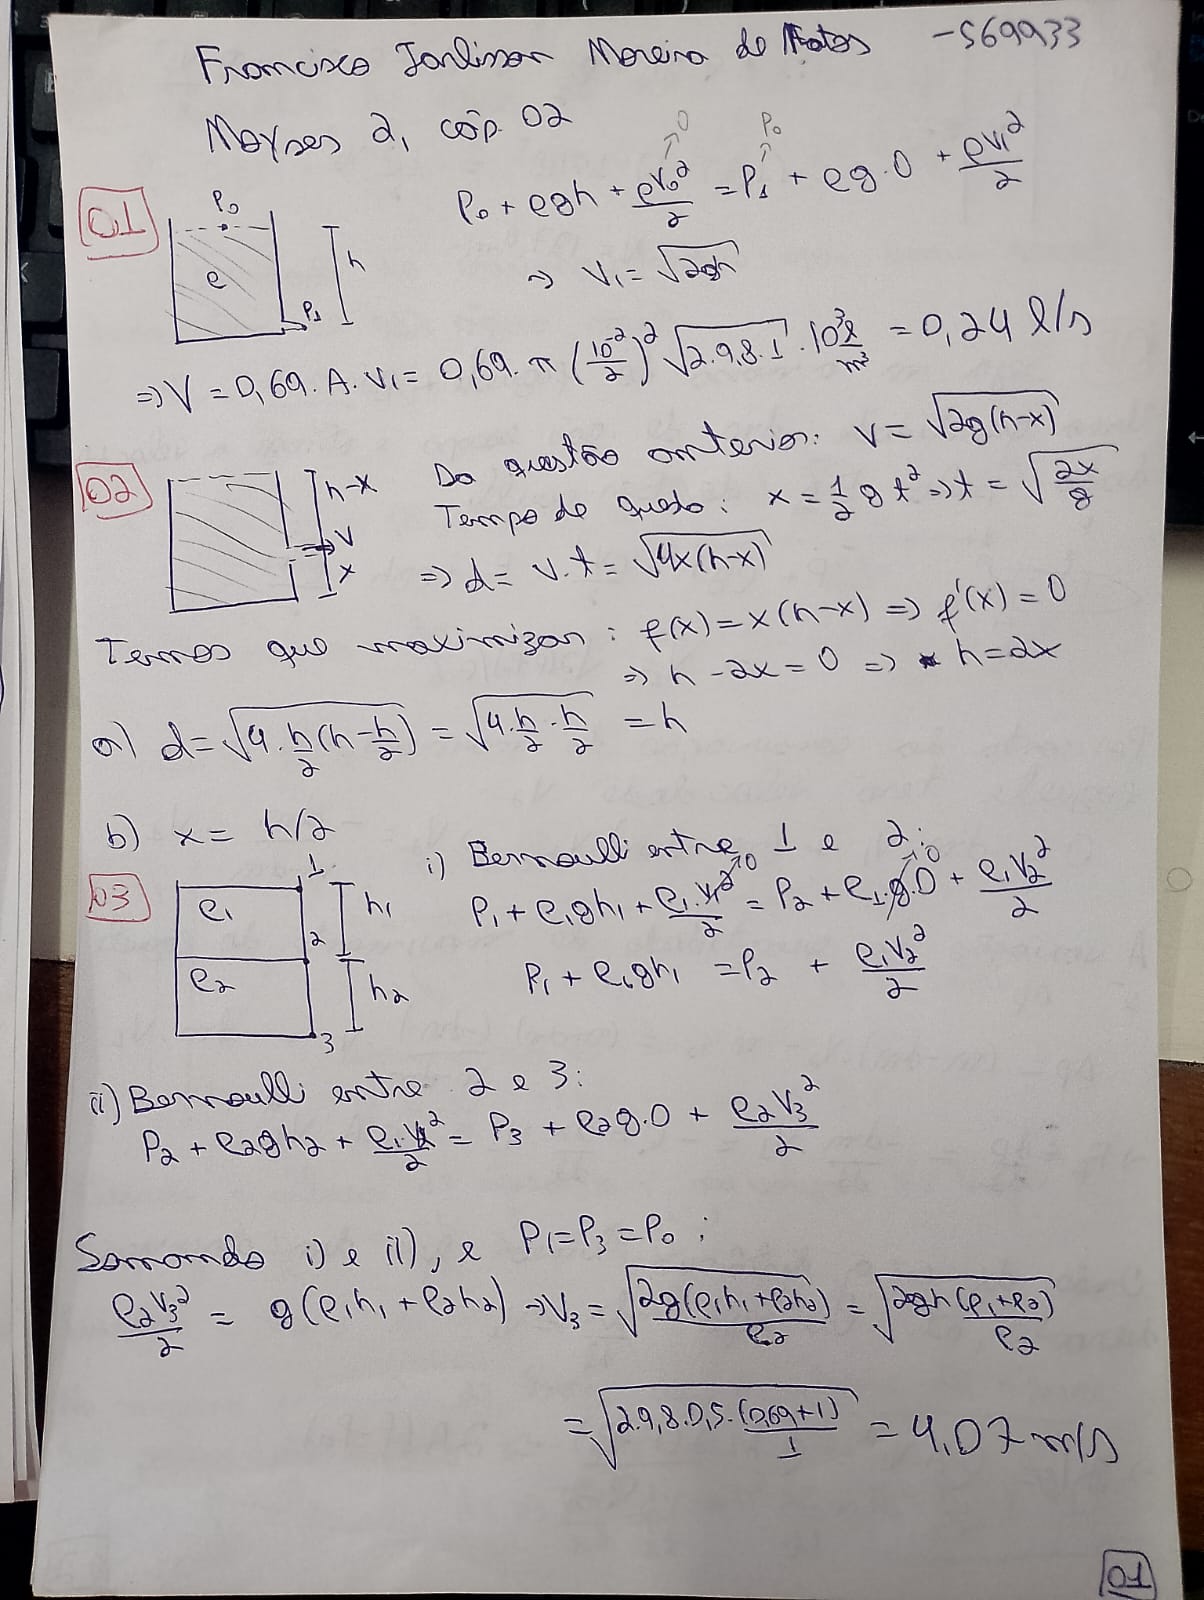 Francisco Jarlisson Moreira de Matos -569933
Moyses 2, cáp. 02
01
P₀
ρ
P₁
h
P₀ + ρgh + ρv₀²/2 → 0 = P₁ → P₀ + ρg.0 + ρv₁²/2
⇒ V₁ = √2gh
⇒ V = 0,69. A. V₁ = 0,69. π (10⁻²/2)² √2.9,8.1 . 10³ l/m³ = 0,24 l/s
02
h-x
V
x
Da questão anterior: V = √2g(h-x)
Tempo de queda: x = 1/2 g t² ⇒ t = √2x/g
⇒ d = v.t = √4x(h-x)
Temos que maximizar: f(x) = x(h-x) ⇒ f'(x) = 0
⇒ h - 2x = 0 ⇒ h = 2x
a) d = √4.h/2(h-h/2) = √4.h/2.h/2 = h
b) x = h/2
03
1
ρ₁
h₁
2
ρ₂
h₂
3
i) Bernoulli entre 1 e 2:
P₁ + ρ₁gh₁ + ρ₁.V₁²/2 → 0 = P₂ + ρ₁.g.0 → 0 + ρ₁V₂²/2
P₁ + ρ₁gh₁ = P₂ + ρ₁V₂²/2
ii) Bernoulli entre 2 e 3:
P₂ + ρ₂gh₂ + ρ₁V₂²/2 = P₃ + ρ₂g.0 + ρ₂V₃²/2
Somando i) e ii), e P₁=P₃=P₀ :
ρ₂V₃²/2 = g(ρ₁h₁ + ρ₂h₂) ⇒ V₃ = √2g(ρ₁h₁+ρ₂h₂)/ρ₂ = √2gh(ρ₁+ρ₂)/ρ₂
= √2.9,8.0,5.(0,69+1)/1 = 4,07 m/s
01